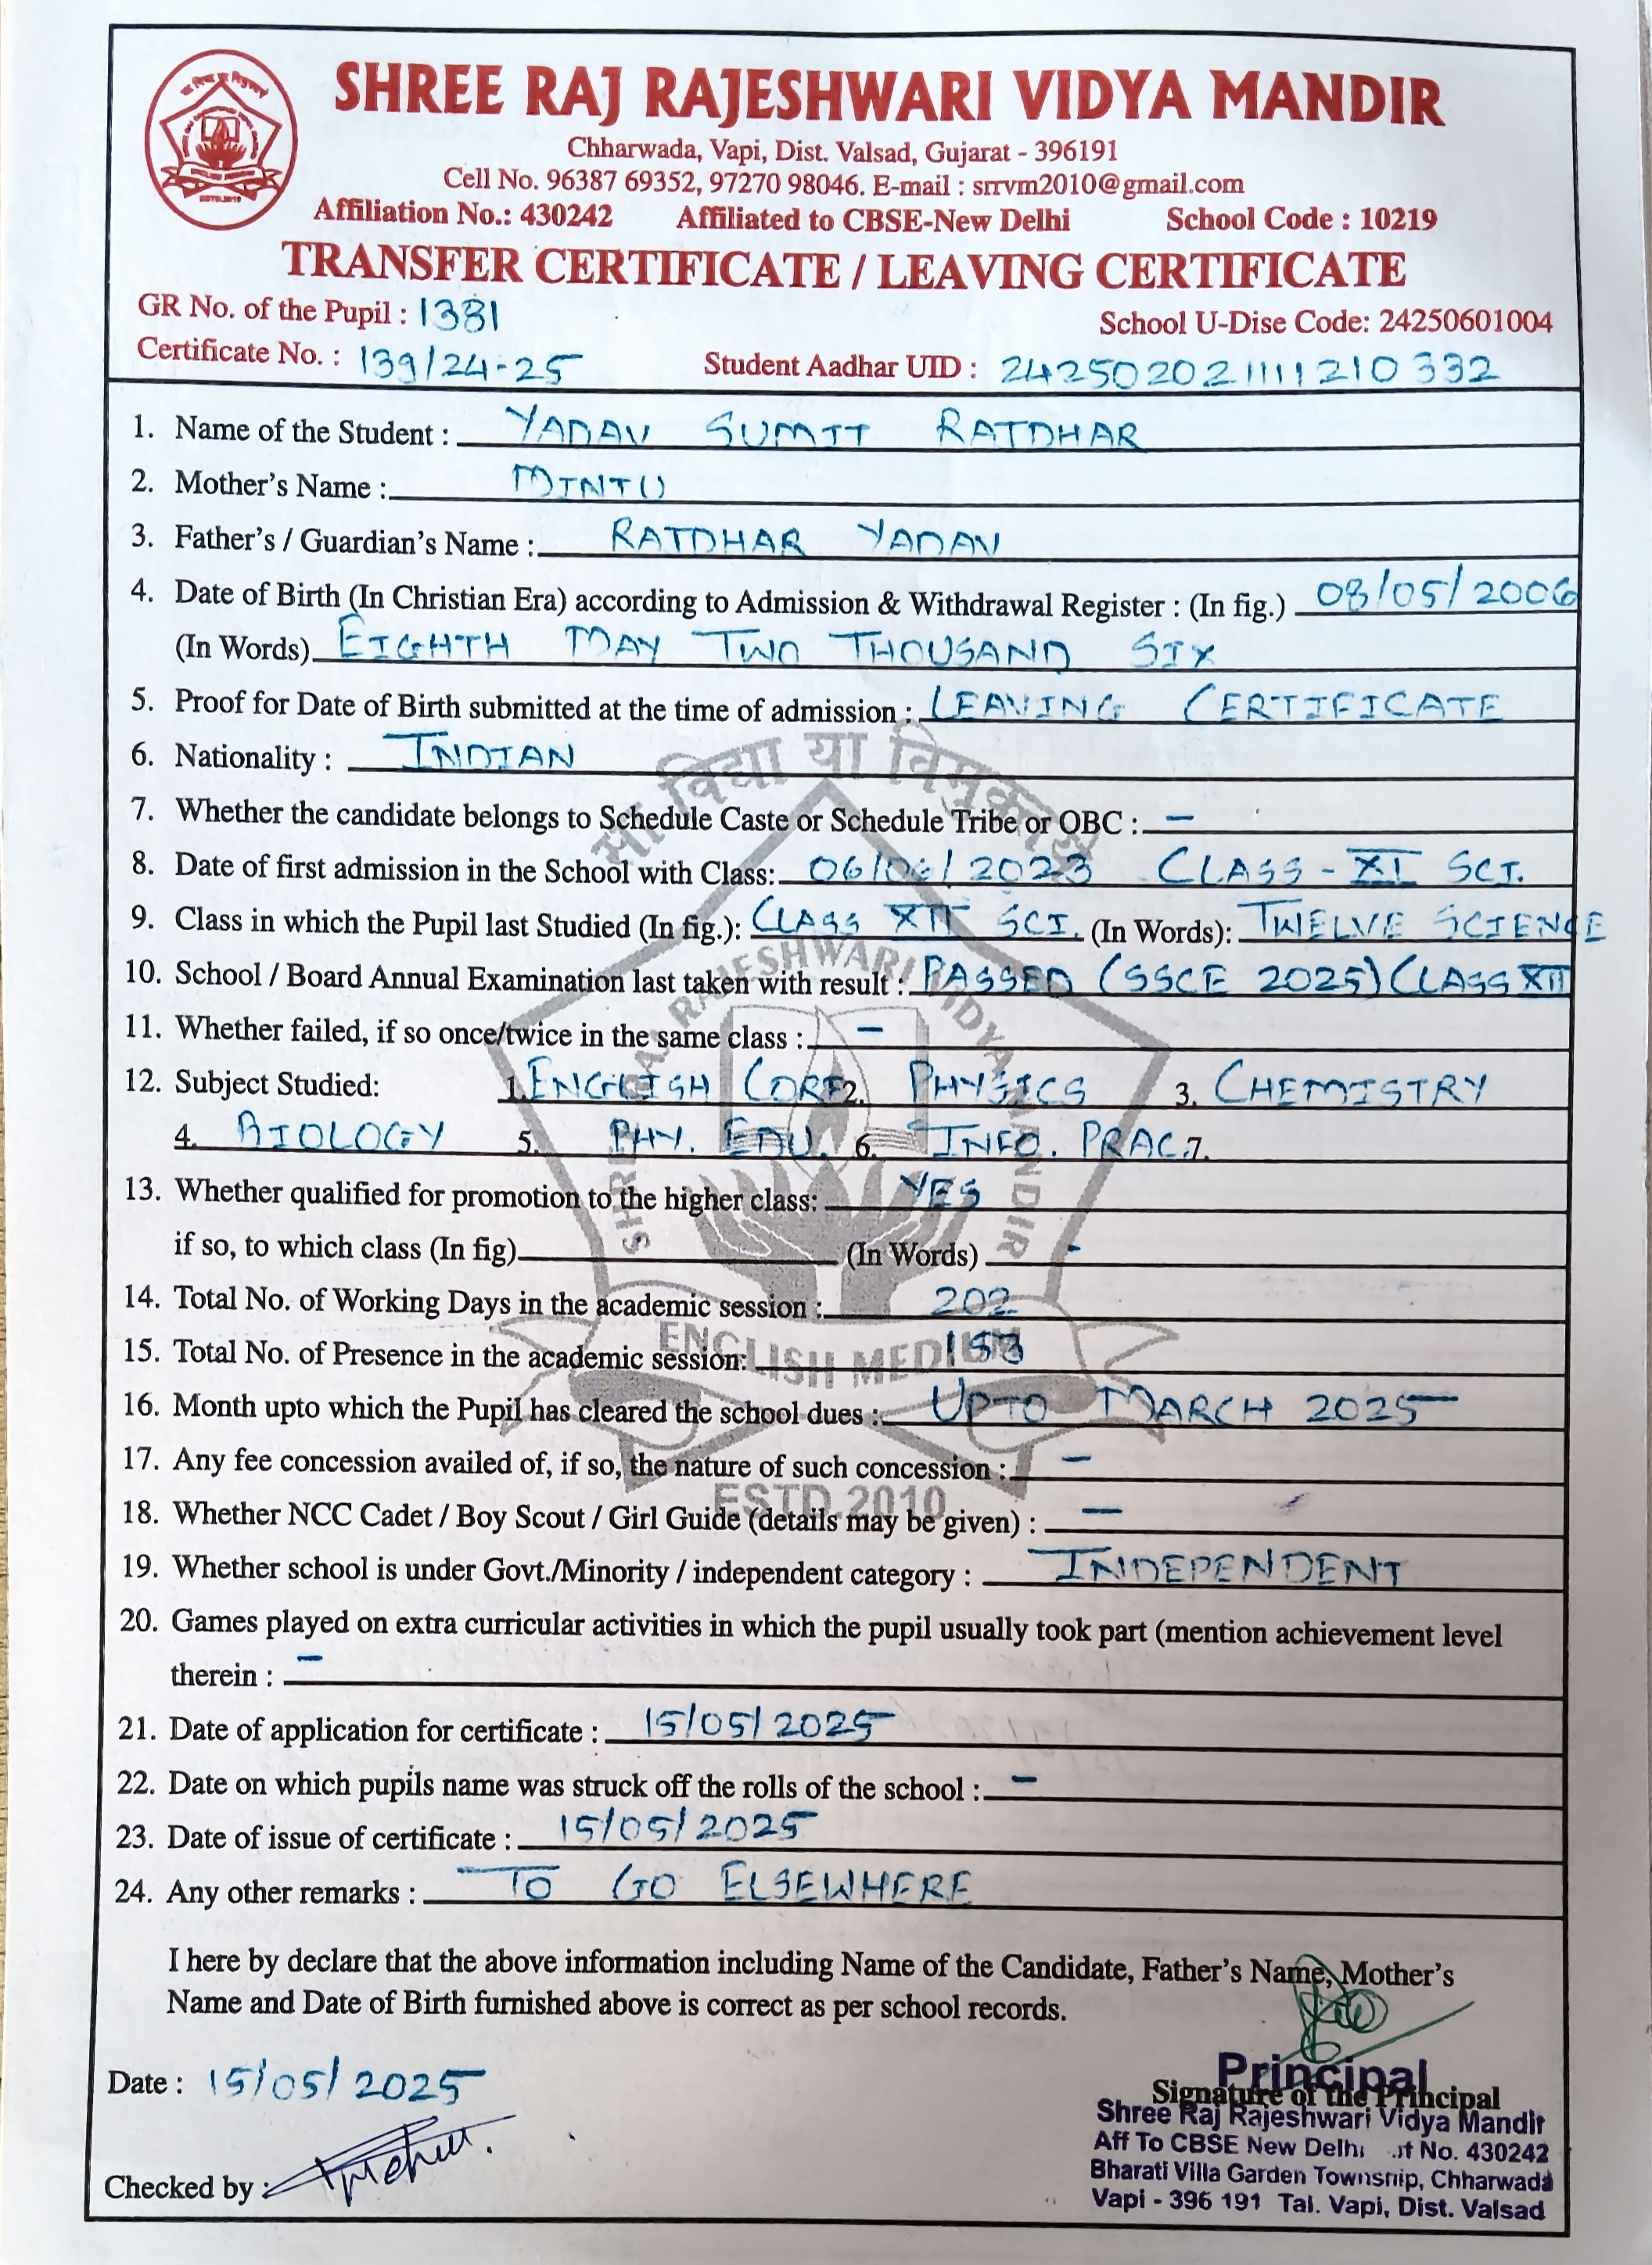 SHREE RAJ RAJESHWARI VIDYA MANDIR
Chharwada, Vapi, Dist. Valsad, Gujarat - 396191
Cell No. 96387 69352, 97270 98046. E-mail : srrvm2010@gmail.com
Affiliation No.: 430242 Affiliated to CBSE-New Delhi School Code : 10219
TRANSFER CERTIFICATE / LEAVING CERTIFICATE
GR No. of the Pupil : 1381 School U-Dise Code: 24250601004
Certificate No. : 139/24-25 Student Aadhar UID : 242502021111210332
1. Name of the Student : YADAV SUMIT RAJDHAR
2. Mother's Name : MINTU
3. Father's / Guardian's Name : RAJDHAR YADAV
4. Date of Birth (In Christian Era) according to Admission & Withdrawal Register : (In fig.) 08/05/2006
(In Words) EIGHTH MAY TWO THOUSAND SIX
5. Proof for Date of Birth submitted at the time of admission : LEAVING CERTIFICATE
6. Nationality : INDIAN
मा विद्या या विमुक्तये
7. Whether the candidate belongs to Schedule Caste or Schedule Tribe or OBC : -
8. Date of first admission in the School with Class: 06/06/2023 CLASS - XI SCI.
9. Class in which the Pupil last Studied (In fig.): CLASS XII SCI. (In Words): TWELVE SCIENCE
SHREE RAJ RAJESHWARI VIDYA MANDIR
10. School / Board Annual Examination last taken with result : PASSED (SSCE 2025) CLASS XII
11. Whether failed, if so once/twice in the same class : -
12. Subject Studied: 1. ENGLISH CORE 2. PHYSICS 3. CHEMISTRY
4. BIOLOGY 5. PHY. EDU. 6. INFO. PRAC. 7.
13. Whether qualified for promotion to the higher class: YES
if so, to which class (In fig) (In Words) -
14. Total No. of Working Days in the academic session : 202
ENGLISH MEDIUM
15. Total No. of Presence in the academic session: 153
16. Month upto which the Pupil has cleared the school dues : UPTO MARCH 2025
17. Any fee concession availed of, if so, the nature of such concession : -
ESTD.2010
18. Whether NCC Cadet / Boy Scout / Girl Guide (details may be given) : -
19. Whether school is under Govt./Minority / independent category : INDEPENDENT
20. Games played on extra curricular activities in which the pupil usually took part (mention achievement level
therein : -
21. Date of application for certificate : 15/05/2025
22. Date on which pupils name was struck off the rolls of the school : -
23. Date of issue of certificate : 15/05/2025
24. Any other remarks : TO GO ELSEWHERE
I here by declare that the above information including Name of the Candidate, Father's Name, Mother's
Name and Date of Birth furnished above is correct as per school records.
Date : 15/05/2025
Principal
Signature of the Principal
Shree Raj Rajeshwari Vidya Mandir
Aff To CBSE New Delhi No. 430242
Bharati Villa Garden Township, Chharwada
Checked by :
Vapi - 396 191 Tal. Vapi, Dist. Valsad